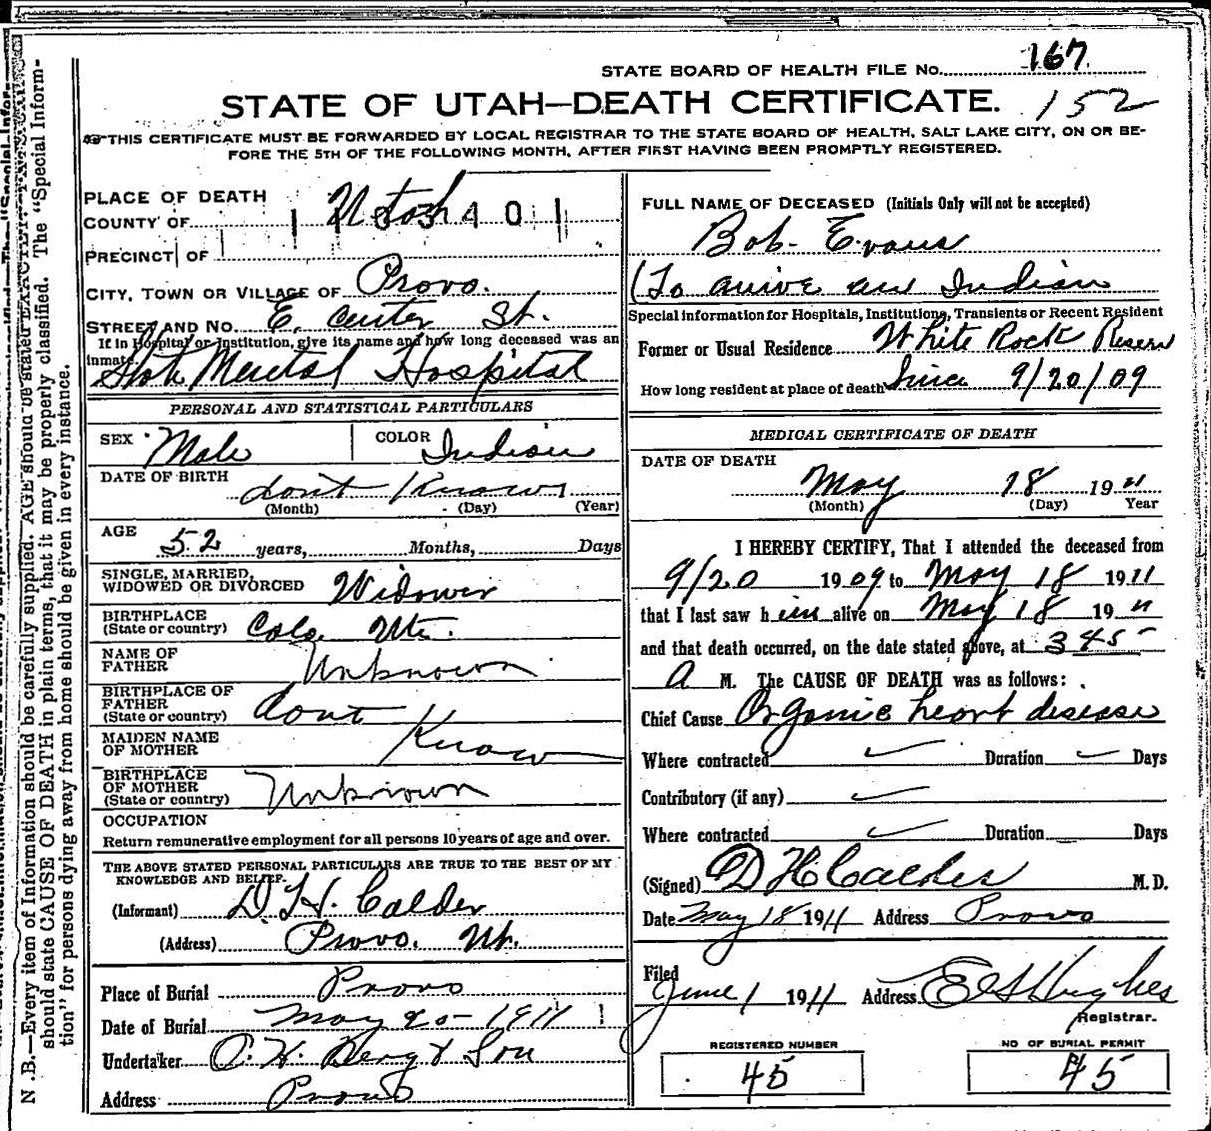 STATE BOARD OF HEALTH FILE No. 167
STATE OF UTAH—DEATH CERTIFICATE. 152
THIS CERTIFICATE MUST BE FORWARDED BY LOCAL REGISTRAR TO THE STATE BOARD OF HEALTH, SALT LAKE CITY, ON OR BE-
FORE THE 5TH OF THE FOLLOWING MONTH, AFTER FIRST HAVING BEEN PROMPTLY REGISTERED.
PLACE OF DEATH
COUNTY OF Utah
PRECINCT OF
CITY, TOWN OR VILLAGE OF Provo.
STREET AND No. E. Center St.
If in Hospital or Institution, give its name and how long deceased was an
inmate. State Mental Hospital
PERSONAL AND STATISTICAL PARTICULARS
SEX Male COLOR Indian
DATE OF BIRTH dont Know
(Month) (Day) (Year)
AGE 52 years, Months, Days
SINGLE, MARRIED,
WIDOWED OR DIVORCED Widower
BIRTHPLACE
(State or country) Colo Ute.
NAME OF
FATHER Unknown
BIRTHPLACE OF
FATHER
(State or country) dont
MAIDEN NAME
OF MOTHER Know
BIRTHPLACE
OF MOTHER
(State or country) Unknown
OCCUPATION
Return remunerative employment for all persons 10 years of age and over.
THE ABOVE STATED PERSONAL PARTICULARS ARE TRUE TO THE BEST OF MY
KNOWLEDGE AND BELIEF.
(Informant) D. H. Calder
(Address) Provo. Ut.
Place of Burial Provo
Date of Burial May 20 - 1911
Undertaker O. H. Berg & Son
Address Provo
FULL NAME OF DECEASED (Initials Only will not be accepted)
Bob Evans
an Indian
Special information for Hospitals, Institutions, Transients or Recent Resident
Former or Usual Residence White Rock Reserv
How long resident at place of death Since 9/20/09
MEDICAL CERTIFICATE OF DEATH
DATE OF DEATH
May 18 1911
(Month) (Day) Year
I HEREBY CERTIFY, That I attended the deceased from
9/20 1909 to May 18 1911
that I last saw him alive on May 18 1911
and that death occurred, on the date stated above, at 3 45
A M. The CAUSE OF DEATH was as follows:
Chief Cause Organic heart disease
Where contracted Duration Days
Contributory (if any)
Where contracted Duration Days
(Signed) D H Calder M. D.
Date May 18 1911 Address Provo
Filed
June 1 1911 Address Hughes
Registrar.
REGISTERED NUMBER
45
NO OF BURIAL PERMIT
45
N. B.—Every item of Information should be carefully supplied. AGE should be stated EXACTLY.
should state CAUSE OF DEATH in plain terms, that it may be properly classified. The "Special Inform-
tion" for persons dying away from home should be given in every instance.